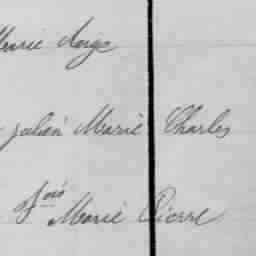 Marie Ange
Julien Marie Charles
Fois Marie Pierre